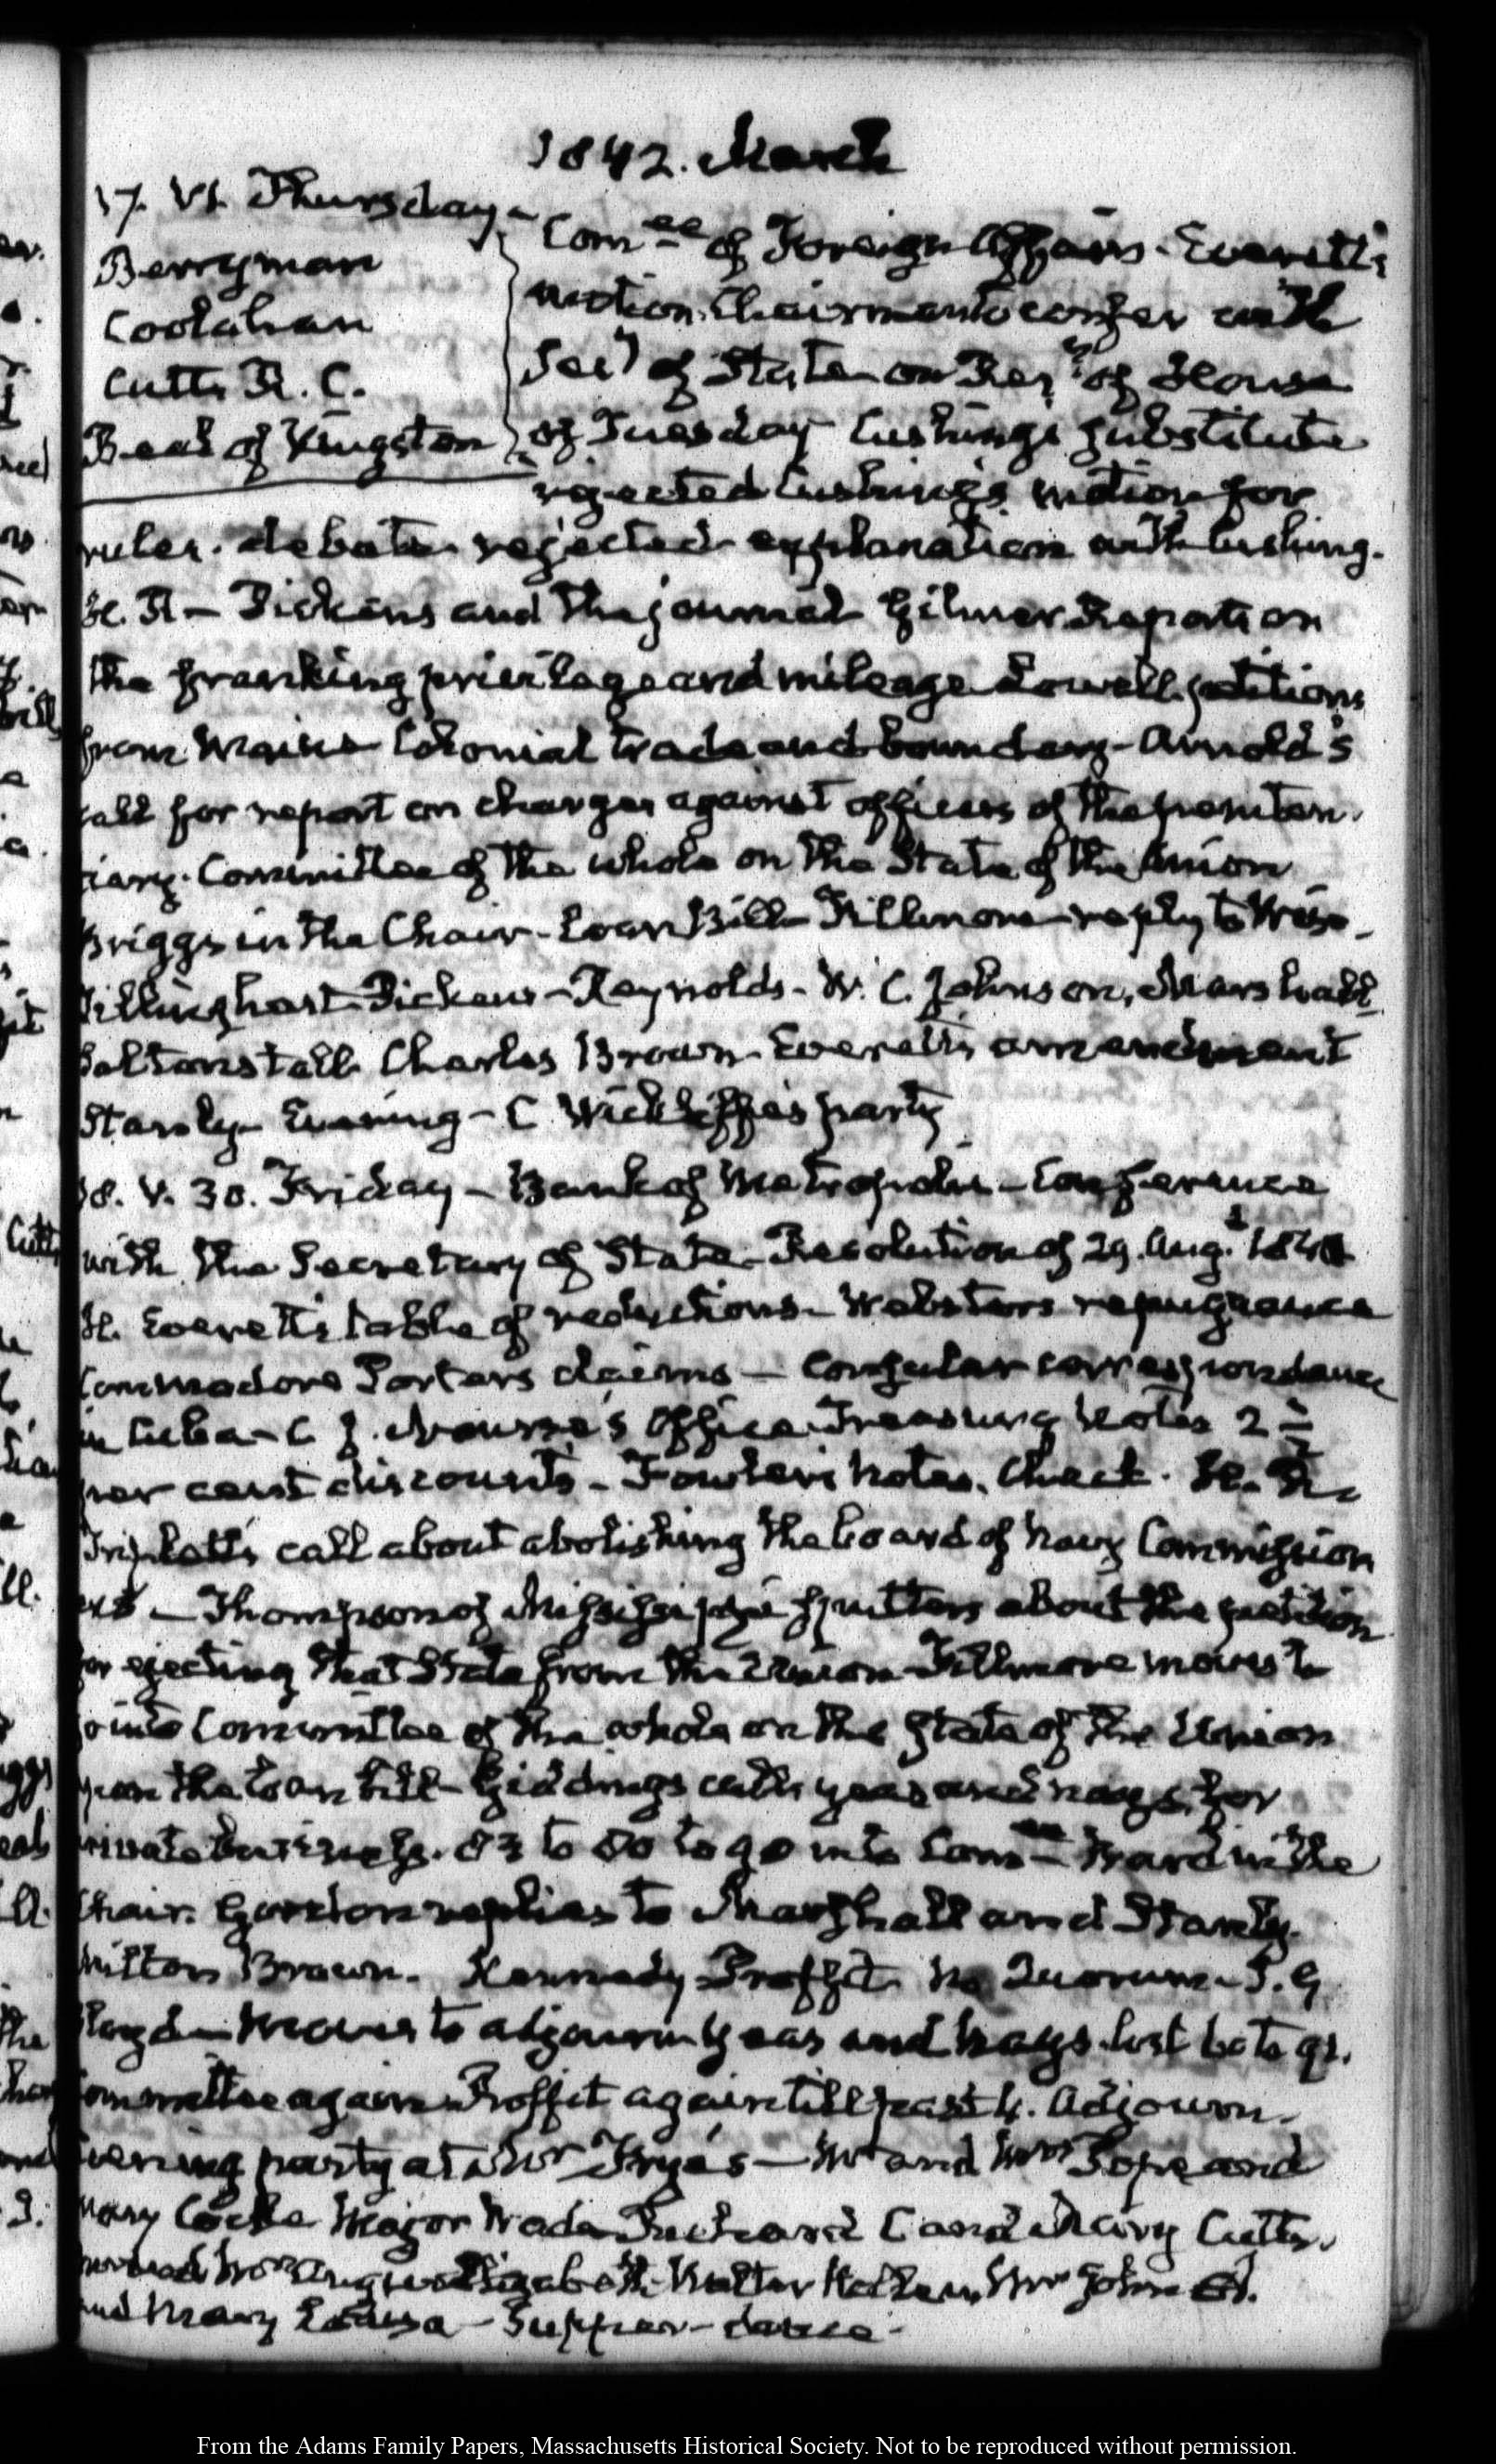 1842. March
17. VI. Thursday.
Berryman
Coolahan
Cutts R. C.
Beal of Kingston
Com.ee of Foreign Affairs. Everett's
motion. Chairman to confer with
Secy of State on Resn of House
of Tuesday Cushing's substitute
rejected Cushing's motion for
rules. debate rejected explanation with Cushing.
H. R. Pickens and the journal Gilmer Report on
the franking privilege and mileage Lowell petitions
from Maine Colonial trade and boundary. Arnold's
call for report on charges against officers of the peniten-
tiary. Committee of the whole on the State of the Union
Briggs in the Chair. Loan Bill Fillmore reply to Wise.
Tillinghast Pickens Reynolds. W. C. Johnson, Marshall
Saltonstall Charles Brown Everett's amendment
Stanly Evening C. Wickliffe's party
18. V. 30. Friday Bank of Metropolis Conference
with the Secretary of State Resolution of 29. Aug. 1841
H. Everett's table of reductions Webster's repugnance
Commodore Porter's claims Consular correspondence
in Cuba C. J. Nourse's Office Treasury Notes 2 1/2
per cent discounts. Fowler's notes. Check. H. R.
Triplett's call about abolishing the board of Navy Commission
ers Thompson of Mississippi sputters about the petition
for ejecting that State from the Union Fillmore moves to
go into Committee of the whole on the State of the Union
upon the loan bill Giddings calls yeas and nays for
private business. 83 to 80 to go into Comee Ward in the
Chair. Gordon replies to Marshall and Stanly.
Milton Brown. Kennedy Proffit No Quorum. J. G
Floyd moves to adjourn Yeas and Nays lost 60 to 91.
Committee again Proffit again till past 4. Adjourn.
Evening party at Mr Frye's Mr and Mrs Pope and
Mary Major Wade Richard C and Mary Cutts.
Mrs Elizabeth Walter Hellen, Mrs John
and Mary Louisa Supper dance
From the Adams Family Papers, Massachusetts Historical Society. Not to be reproduced without permission.